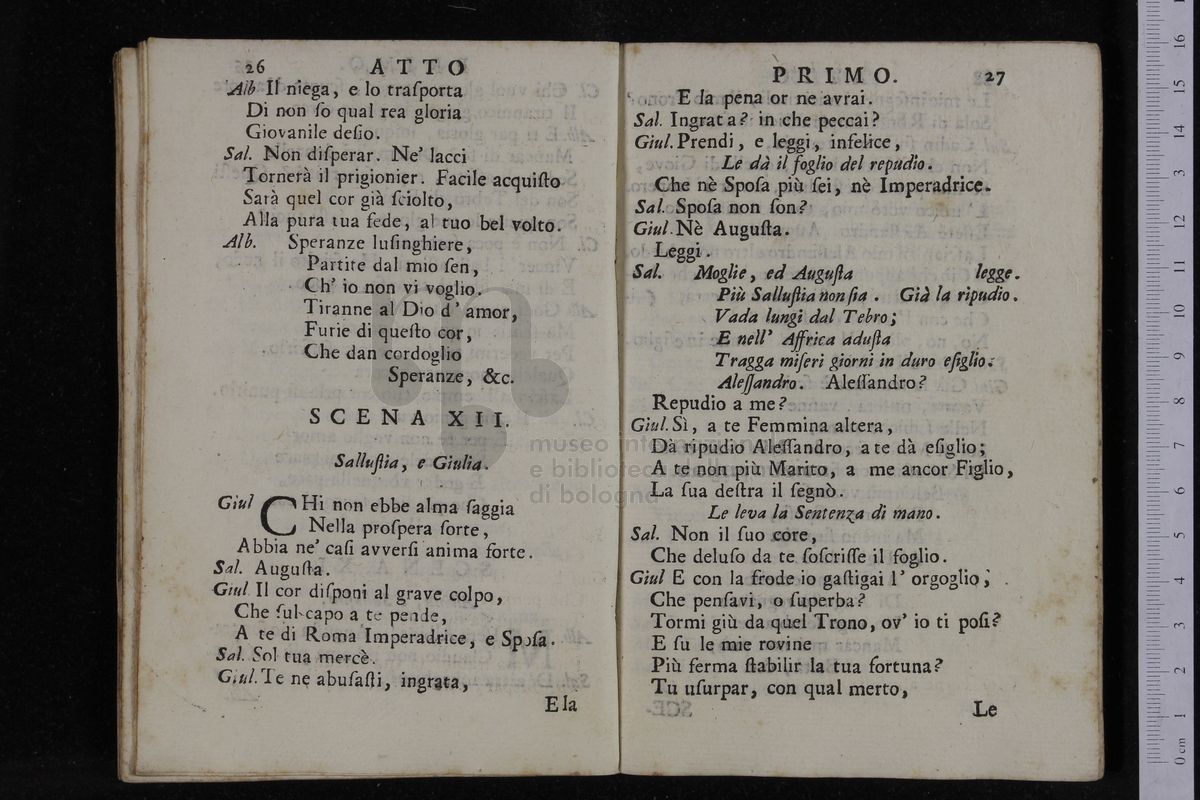 26 ATTO
Alb Il niega, e lo traſporta
Di non ſo qual rea gloria
Giovanile deſio.
Sal. Non diſperar. Ne' lacci
Tornerà il prigionier. Facile acquiſto
Sarà quel cor già ſciolto,
Alla pura tua fede, al tuo bel volto.
Alb. Speranze luſinghiere,
Partite dal mio ſen,
Ch' io non vi voglio.
Tiranne al Dio d' amor,
Furie di queſto cor,
Che dan cordoglio
Speranze, &c.
SCENA XII.
Salluſtia, e Giulia.
Giul CHi non ebbe alma ſaggia
Nella proſpera ſorte,
Abbia ne' caſi avverſi anima forte.
Sal. Auguſta.
Giul Il cor diſponi al grave colpo,
Che ſul capo a te pende,
A te di Roma Imperadrice, e Spoſa.
Sal. Sol tua mercè.
Giul. Te ne abuſaſti, ingrata,
E la
PRIMO. 27
E la pena or ne avrai.
Sal. Ingrata? in che peccai?
Giul. Prendi, e leggi, infelice,
Le dà il foglio del repudio.
Che nè Spoſa più ſei, nè Imperadrice.
Sal. Spoſa non ſon?
Giul. Nè Auguſta.
Leggi.
Sal. Moglie, ed Auguſta legge.
Più Salluſtia non ſia. Già la ripudio.
Vada lungi dal Tebro;
E nell' Affrica aduſta
Tragga miſeri giorni in duro eſiglio:
Aleſſandro. Aleſſandro?
Repudio a me?
Giul. Sì, a te Femmina altera,
Dà ripudio Aleſſandro, a te dà eſiglio;
A te non più Marito, a me ancor Figlio,
La ſua deſtra il ſegnò.
Le leva la Sentenza di mano.
Sal. Non il ſuo core,
Che deluſo da te ſoſcriſſe il foglio.
Giul E con la frode io gaſtigai l' orgoglio;
Che penſavi, o ſuperba?
Tormi giù da quel Trono, ov' io ti poſi?
E ſu le mie rovine
Più ferma ſtabilir la tua fortuna?
Tu uſurpar, con qual merto,
Le
museo internazionale
e biblioteca della musica
di bologna
0 cm 1 2 3 4 5 6 7 8 9 10 11 12 13 14 15 16